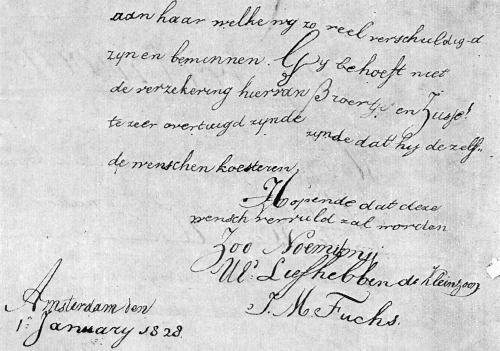 aan haar welke wy zo veel verschuldig'd
zyn en beminnen. Gy behoeft niet
de verzekering hiervan Broertje en Zusje!
te zeer overtuigd zynde zynde dat hy de zelf=
de wenschen koesteren
Hopende dat deze
wensch vervuld zal worden
Zoo Noem ik mij
UEs. Liefhebbende Kleinzoon
J. M. Fuchs.
Amsterdam den
1e January 1828.